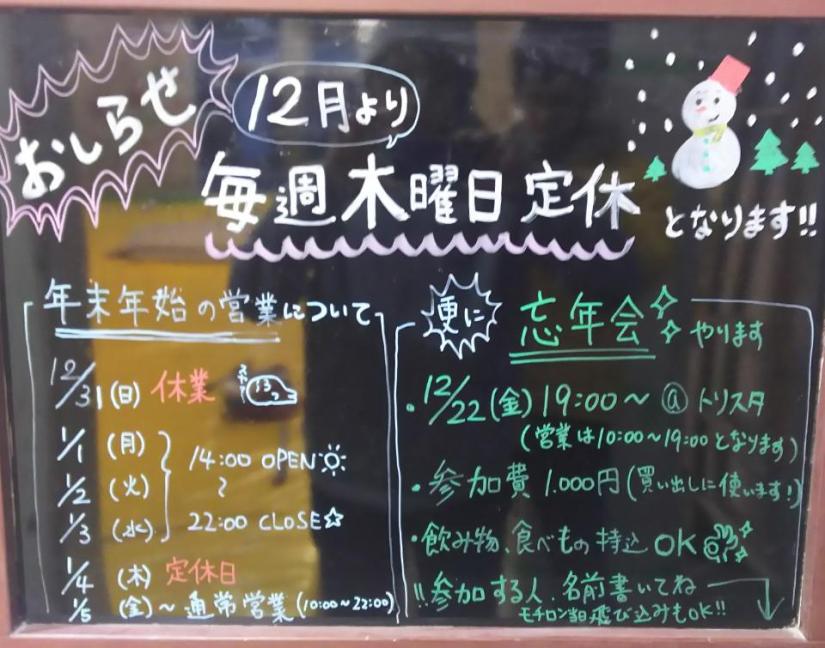 おしらせ
12月より
毎週木曜日定休
となります!!
年末年始の営業について
12/31(日) 休業
1/1 (月)
1/2 (火)
1/3 (水)
14:00 OPEN
〜
22:00 CLOSE☆
1/4 (木) 定休日
1/5 (金)〜通常営業(10:00〜22:00)
更に 忘年会 やります
・12/22(金)19:00〜 @トリスタ
(営業は10:00〜19:00となります)
・参加費 1.000円(買い出しに使います!)
・飲み物、食べもの持込 OK
!!参加する人、名前書いてね
モチロン当日飛び込みもOK!!